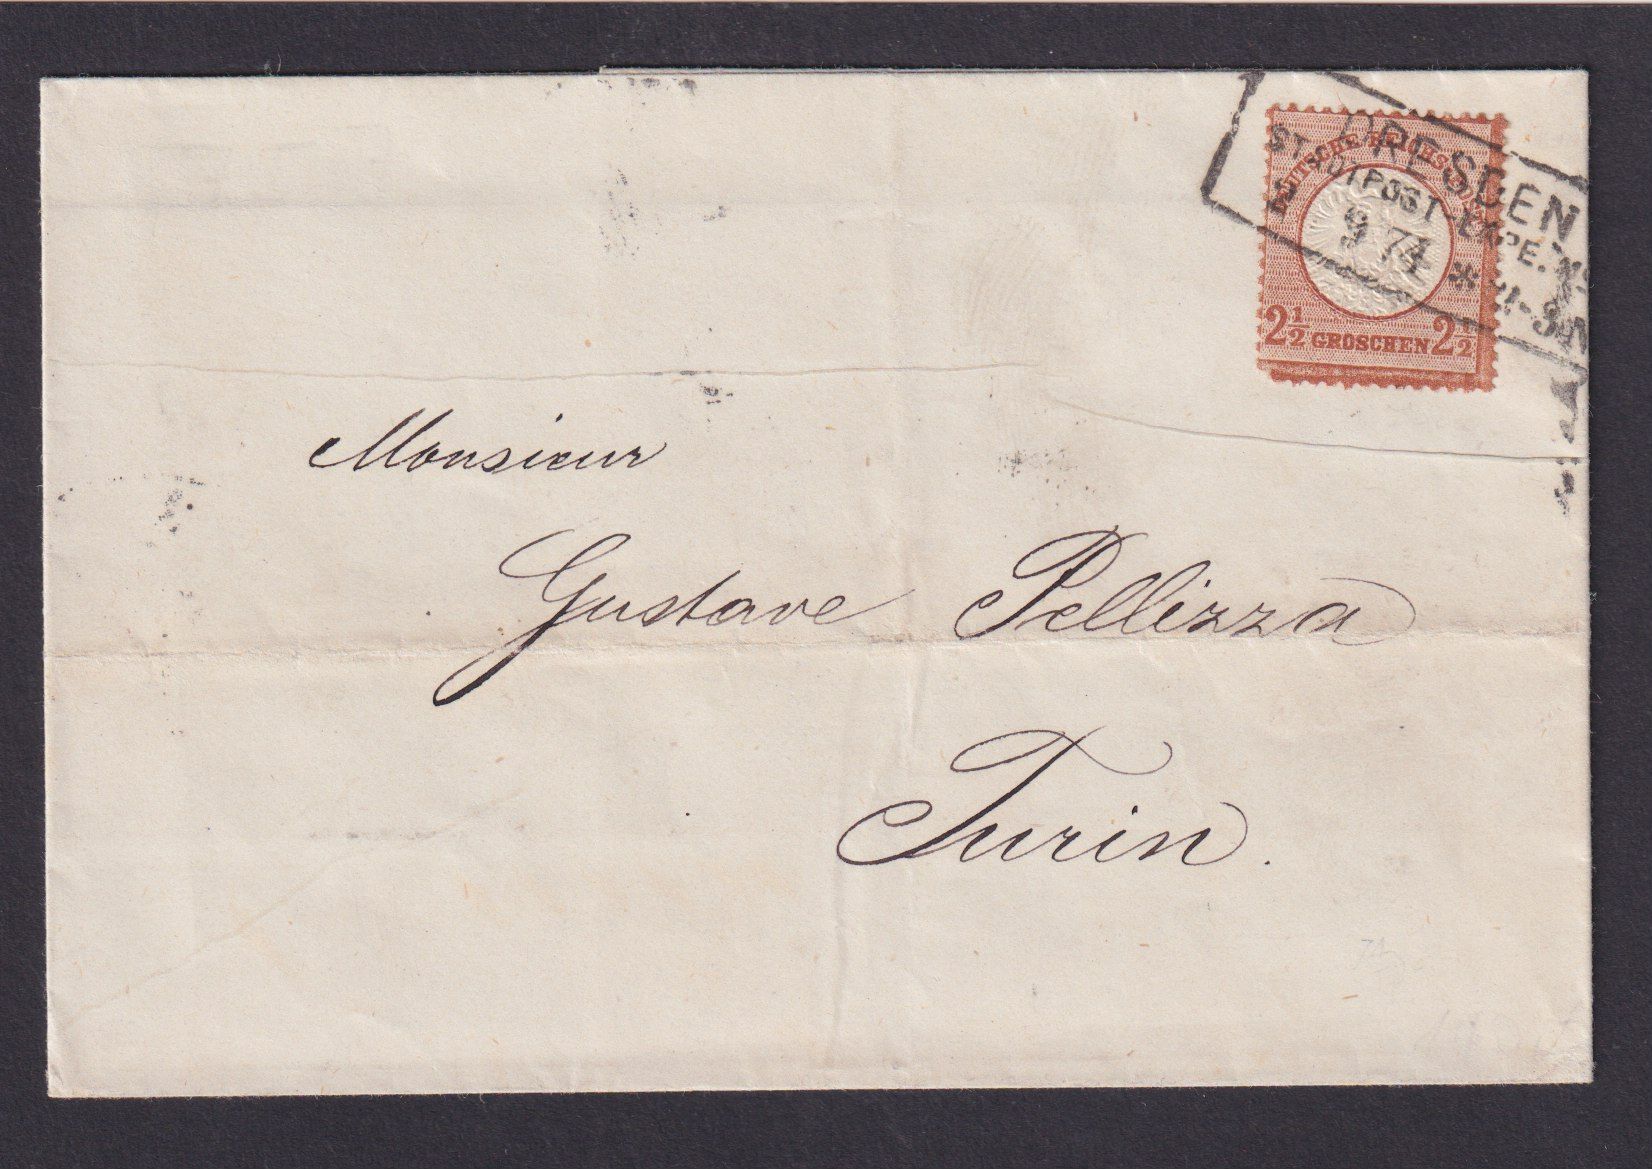 DRESDEN
STADTPOST-EXPE. N
2
9 74 * 11-
DEUTSCHE REICHS-POST
2½ GROSCHEN 2½
Monsieur
Gustave Pellizza
Turin.